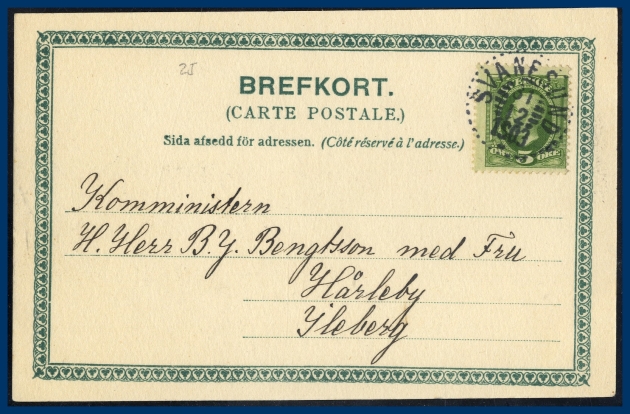 25
BREFKORT.
(CARTE POSTALE.)
Sida afsedd för adressen. (Côté réservé à l'adresse.)
SVANESUND
31
12
1903
5
Komministern
H. Herr B. J. Bengtsson med Fru
Hårleby
Ileberg